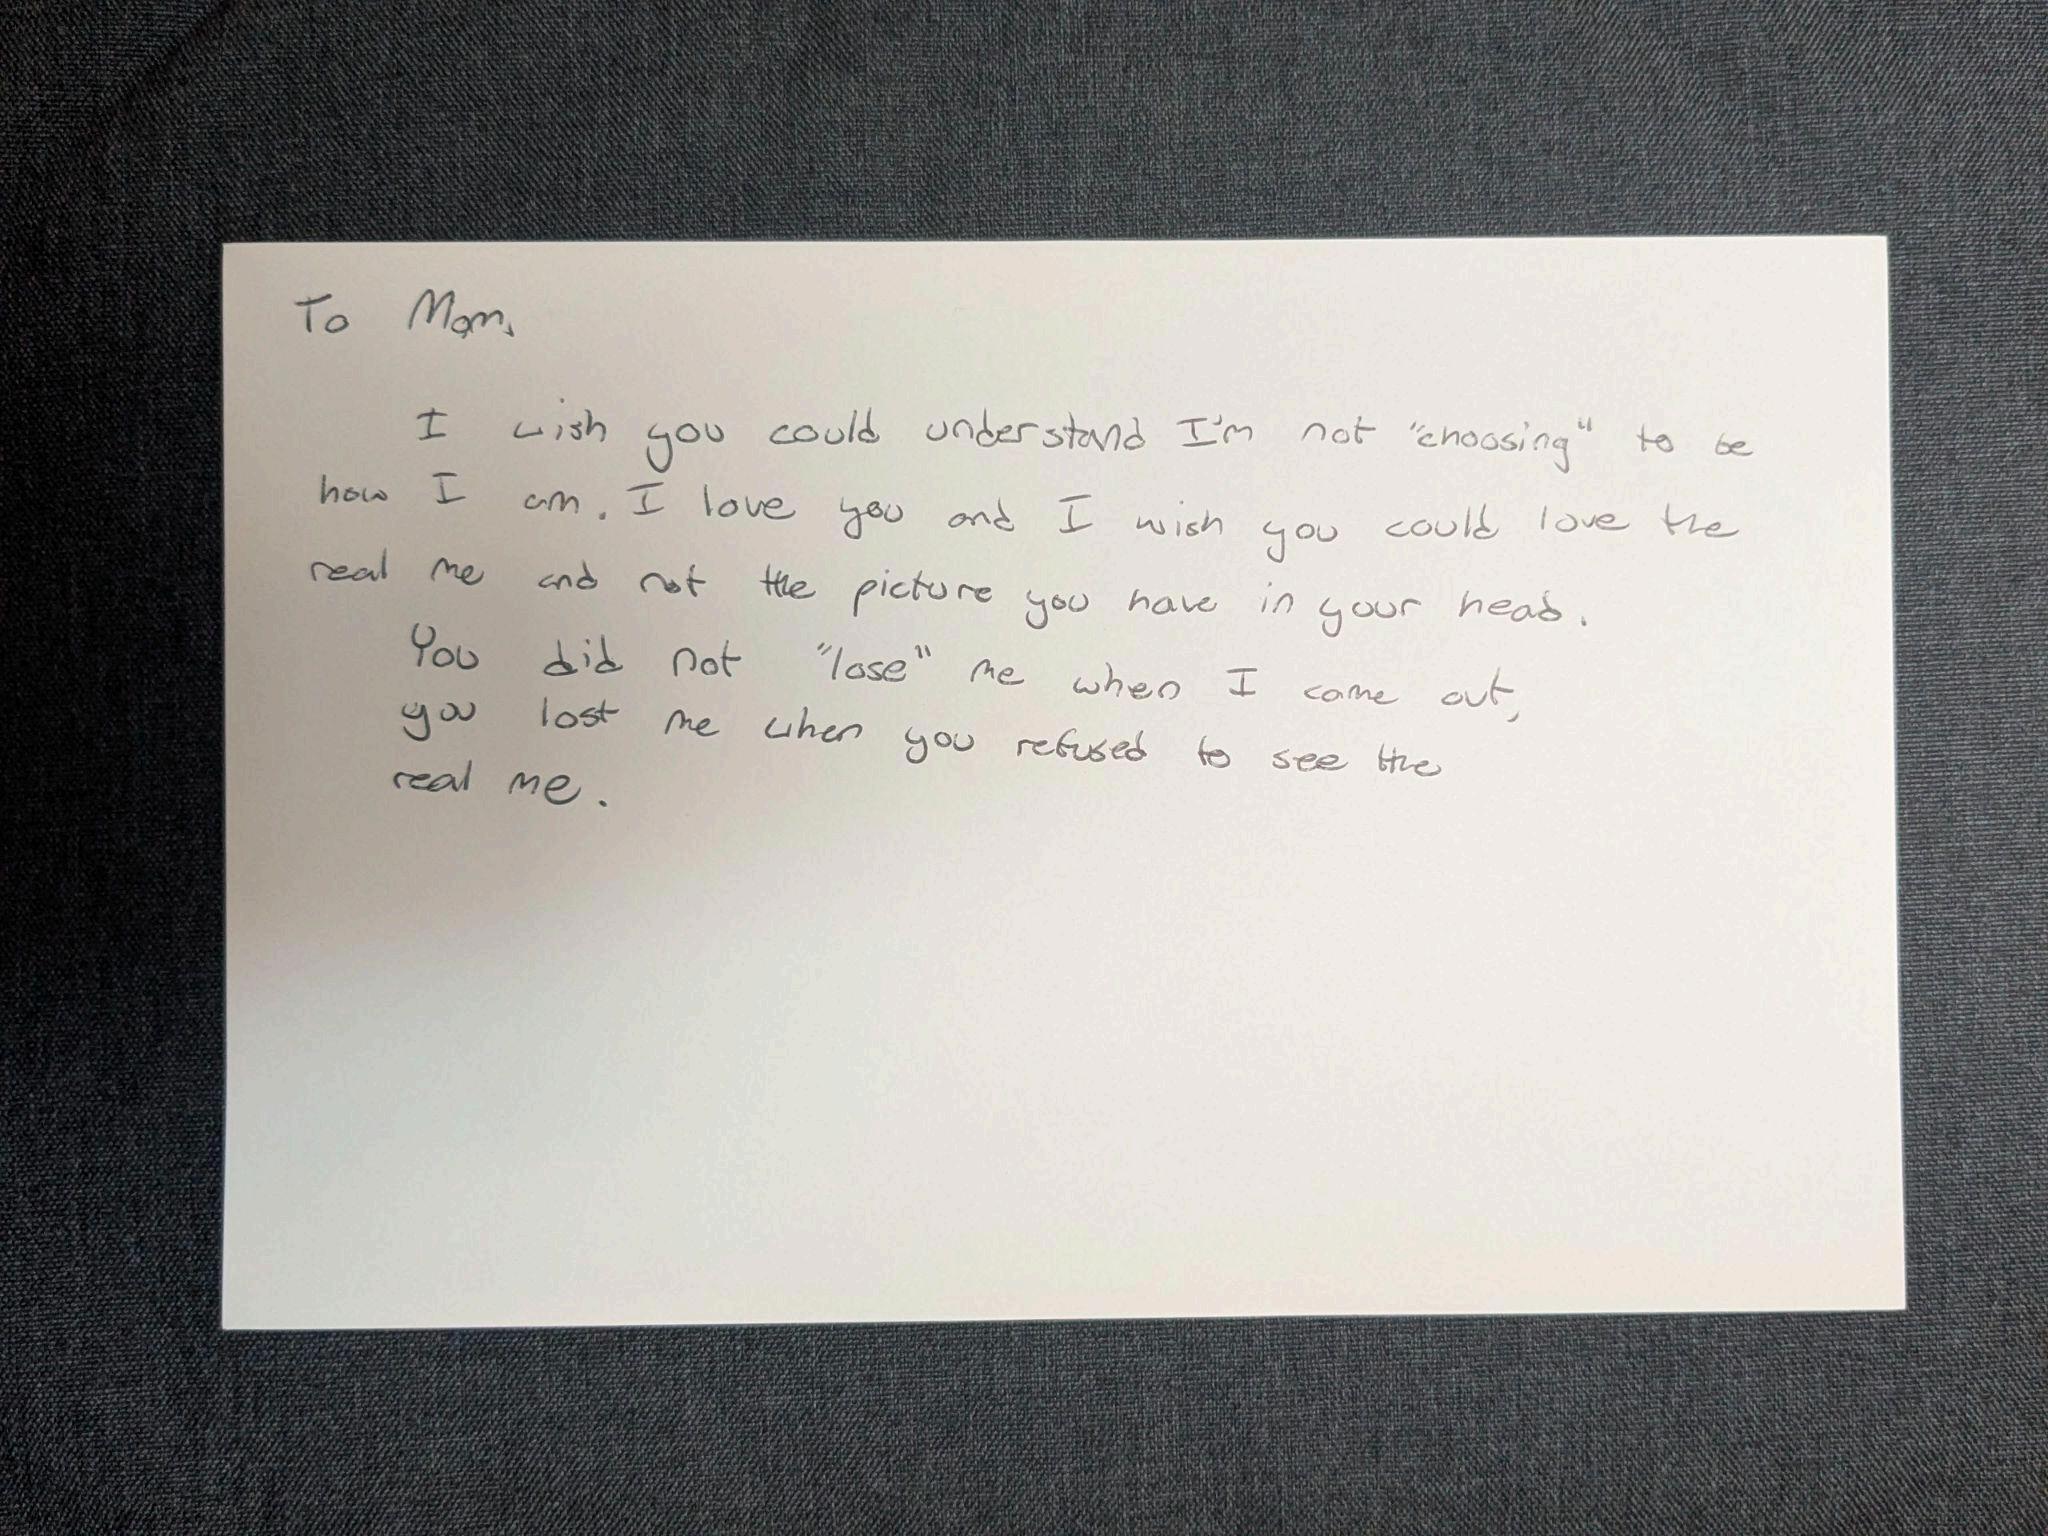 To Mom,
I wish you could understand I'm not "choosing" to be
how I am. I love you and I wish you could love the
real me and not the picture you have in your head.
You did not "lose" me when I came out,
you lost me when you refused to see the
real me.